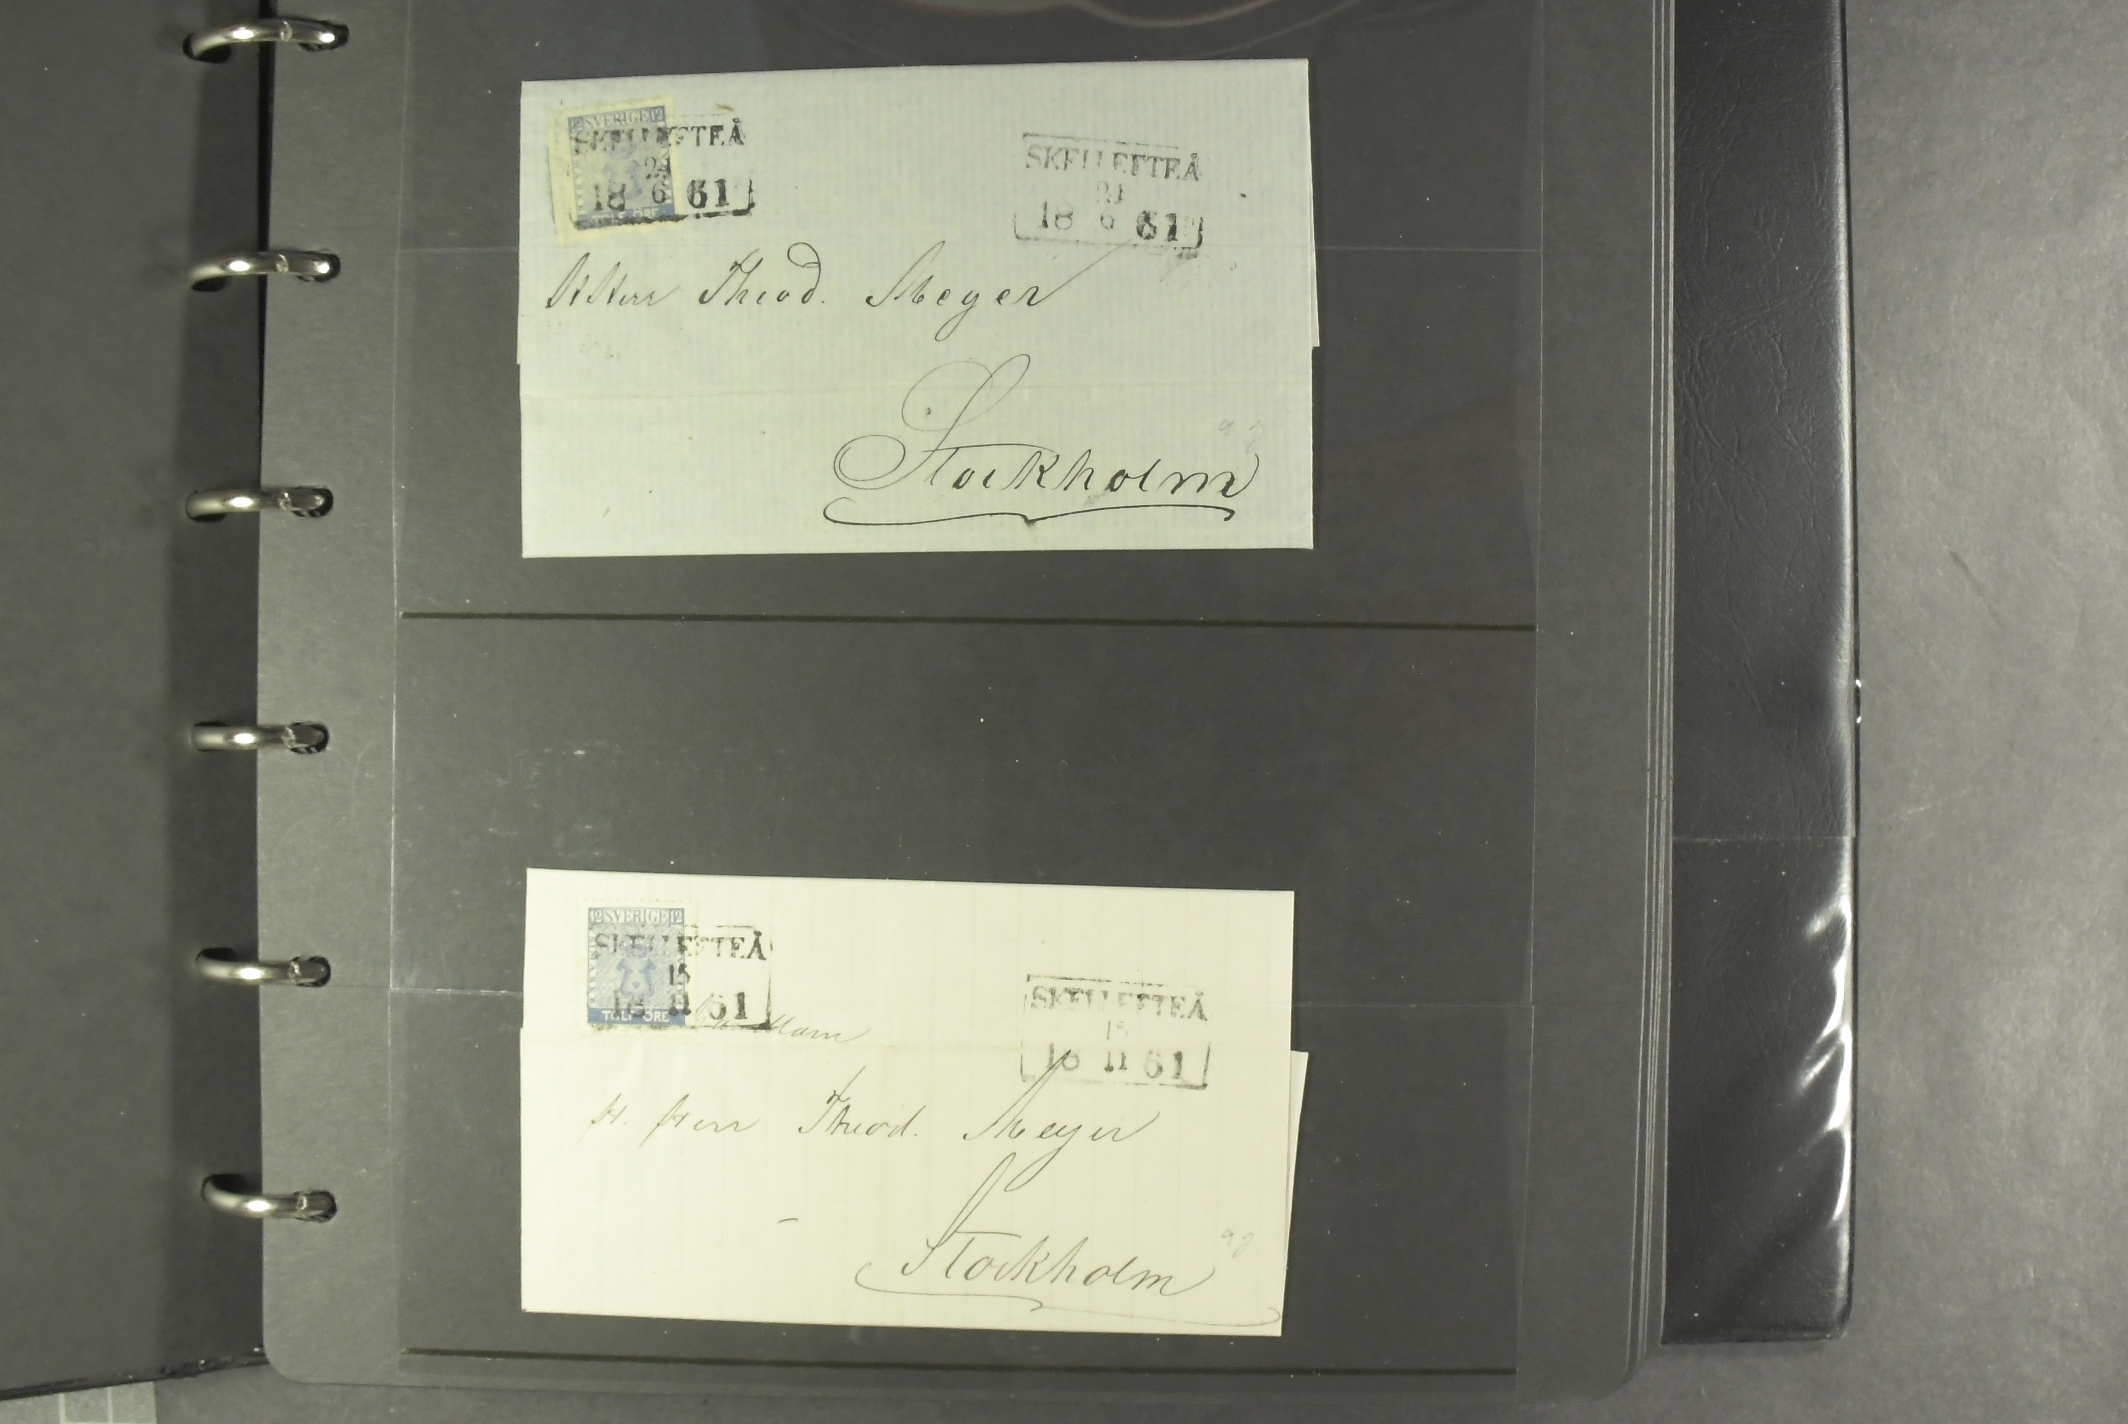 12 SVERIGE 12
SKELLEFTEÅ
18 6 61
TOLF ÖRE
SKELLEFTEÅ
18 6 61
H Herr Theod. Meyer
Stockholm
12 SVERIGE 12
SKELLEFTEÅ
15
18 11 61
TOLF ÖRE
SKELLEFTEÅ
15
18 11 61
H. Herr Theod. Meyer
Stockholm